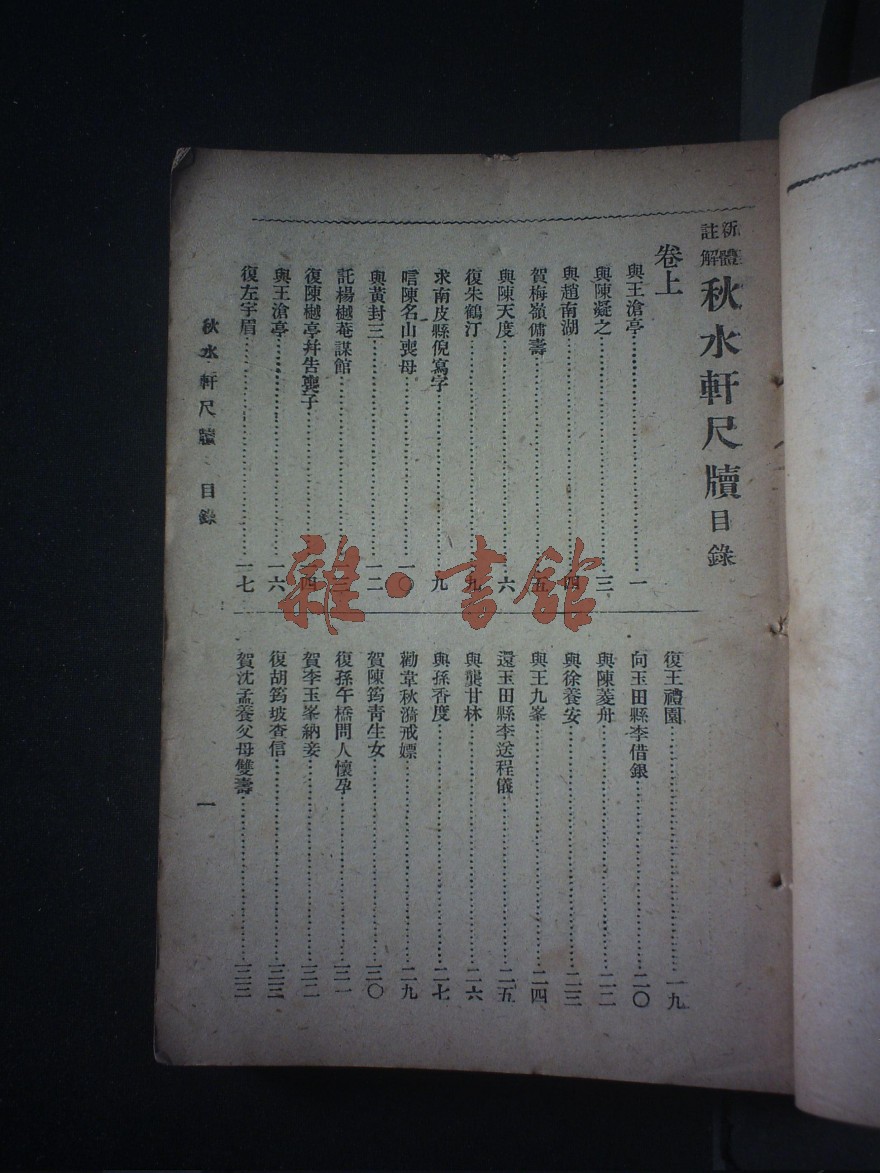 新體註解秋水軒尺牘目錄
卷上
與王滄亭……一
與陳凝之……三
與趙南湖……四
賀梅嶺傭壽……五
與陳天度……六
復朱鶴汀……九
求南皮縣倪寫字……九
唁陳名山喪母……一〇
與黃封三……一二
託楊樾菴謀館……一三
復陳樾亭幷告喪子……一四
與王滄亭……一六
復左宇眉……一七
復王禮園……一九
向玉田縣李借銀……二〇
與陳菱舟……二二
與徐養安……二三
與王九峯……二四
還玉田縣李送程儀……二五
與龔甘林……二六
與孫香度……二七
勸韋秋漪戒嫖……二九
賀陳筠靑生女……三〇
復孫午橋問人懷孕……三一
賀李玉峯納妾……三二
復胡筠坡查信……三三
賀沈孟養父母雙壽……三三
秋水軒尺牘 目錄
一
雜·書館